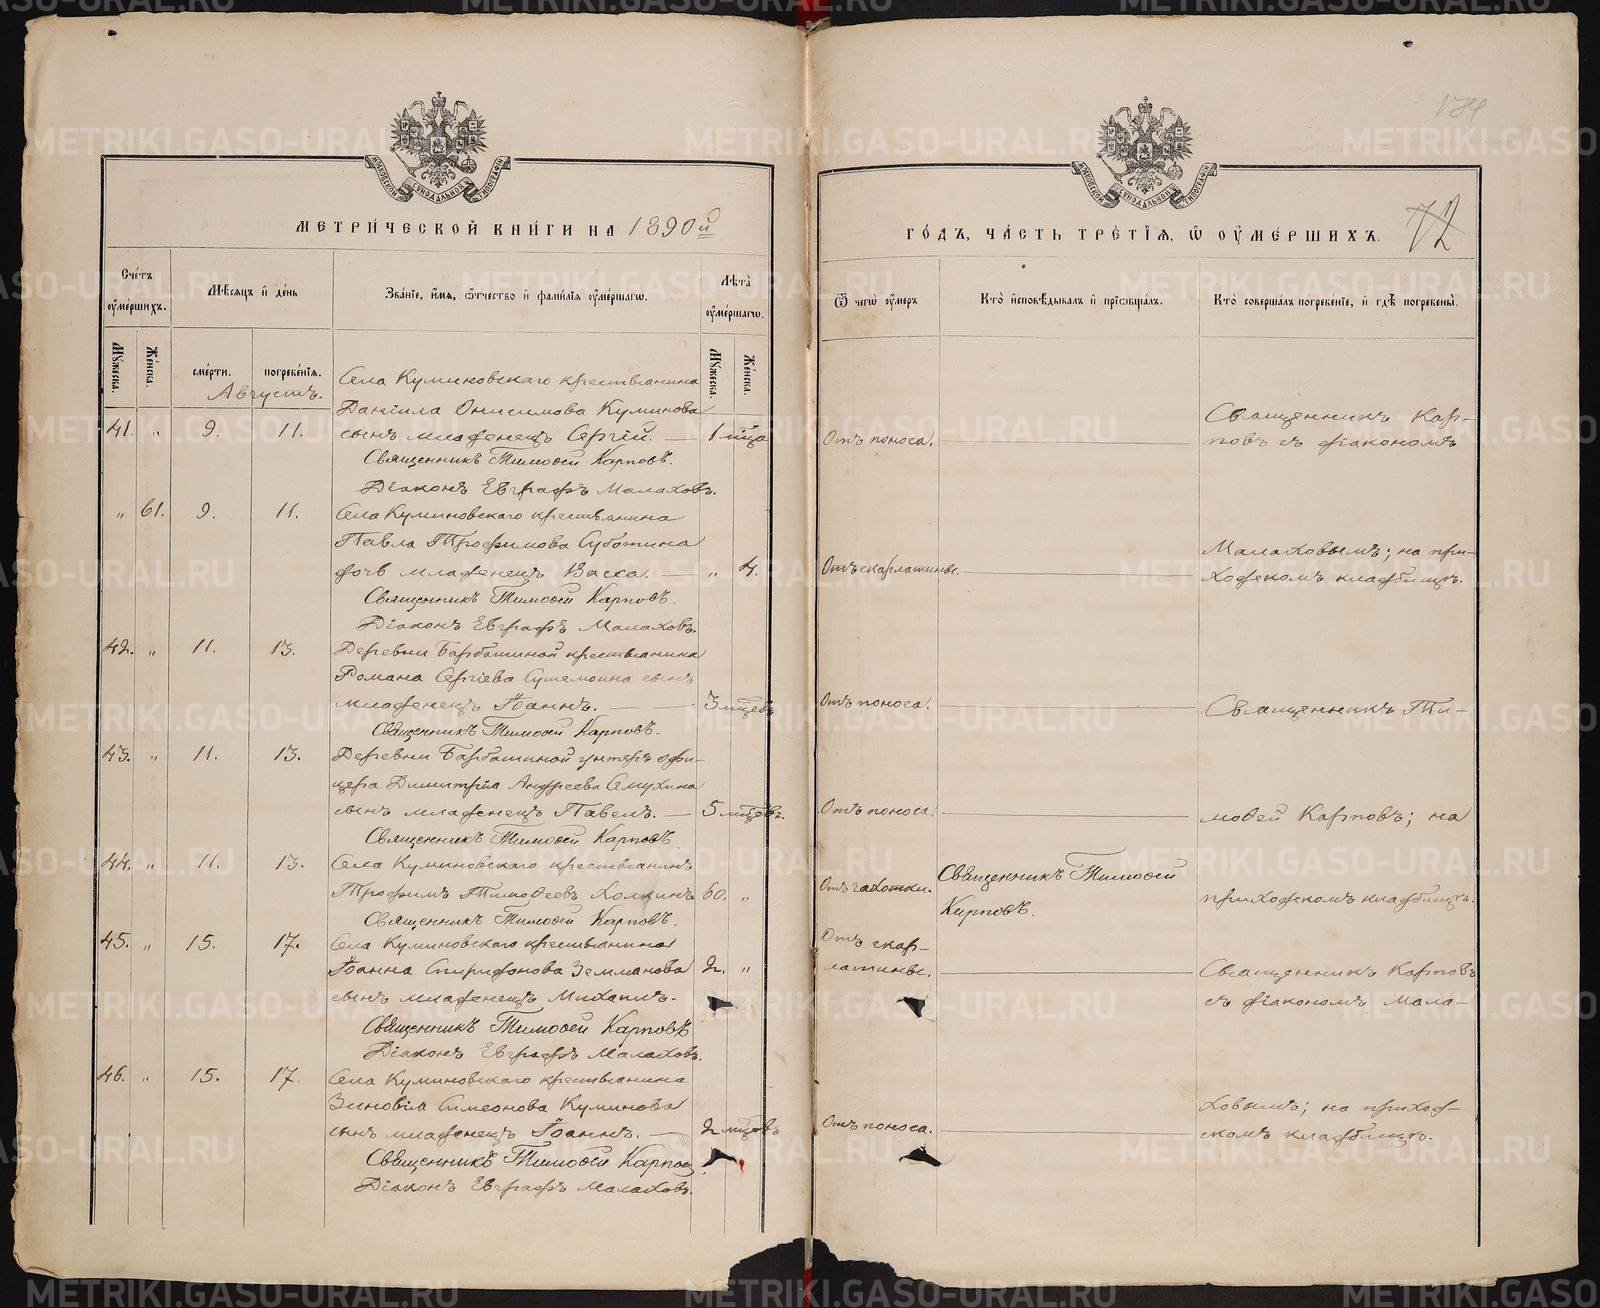 МЕТРИ́ЧЕСКОЙ КНИ́ГИ НА 1890й
Сче́тъ ᲂу҆ме́ршихъ.
Мѣ́сяцъ и҆ де́нь
Зва́нїе, и҆́мя, ѻ҆́тчество и҆ фами́лїя ᲂу҆ме́ршагѡ.
Лѣ́та ᲂу҆ме́ршагѡ.
Мꙋ́жеска.
Же́нска.
сме́рти.
погребе́нїя.
Мꙋ́жеска.
Же́нска.
Августъ.
Села Куминовскаго крестьянина
Данiила Онисимова Куминова
41. " 9. 11. сынъ младенецъ Сергiй. — 1 мѣца
Священникъ Тимоѳей Карповъ.
Дiаконъ Евграфъ Малаховъ.
" 61. 9. 11. Села Куминовскаго крестьянина
Павла Трофимова Суботина
дочь младенецъ Васса. — " 4.
Священникъ Тимоѳей Карповъ.
Дiаконъ Евграфъ Малаховъ.
42. " 11. 13. Деревни Барбашиной крестьянина
Романа Сергiева сынъ
младенецъ Iоаннъ. — 3 мѣцевъ
Священникъ Тимоѳей Карповъ.
43. " 11. 13. Деревни Барбашиной унтеръ офи-
цера Димитрiя Андреева Смухина
сынъ младенецъ Павелъ. — 5 мѣцевъ.
Священникъ Тимоѳей Карповъ.
44. " 11. 13. Села Куминовскаго крестьянинъ
Трофимъ Тимоѳеевъ Холкинъ 60. "
Священникъ Тимоѳей Карповъ.
45. " 15. 17. Села Куминовскаго крестьянина
Iоанна Спиридонова Земланова 2. "
сынъ младенецъ Михаилъ.
Священникъ Тимоѳей Карповъ
Дiаконъ Евграфъ Малаховъ.
46. " 15. 17. Села Куминовскаго крестьянина
Зиновiя Симеонова Куминова
сынъ младенецъ Iоаннъ. — 2 мѣцевъ
Священникъ Тимоѳей Карповъ
Дiаконъ Евграфъ Малаховъ.
ГО́ДЪ, ЧА́СТЬ ТРЕ́ТЇЯ, Ѡ҆ ОУ҆МЕ́РШИХЪ. 72
Ѿ чегѡ̀ ᲂу҆́меръ
Кто̀ и҆сповѣ́дывалъ и҆ прїѡбща́лъ.
Кто̀ соверша́лъ погребе́нїе, и҆ гдѣ̀ погребены̀.
Отъ поноса.
Священникъ Кар-
повъ съ дiакономъ
Отъ скарлатины.
Малаховымъ; на при-
ходскомъ кладбищѣ.
Отъ поноса.
Священникъ Ти-
Отъ поноса.
моѳей Карповъ; на
Отъ чахотки.
Священникъ Тимоѳей
Карповъ.
приходскомъ кладбищѣ.
Отъ скар-
латины.
Священникъ Карповъ
съ дiакономъ Мала-
Отъ поноса.
ховымъ; на приход-
скомъ кладбищѣ.
METRIKI.GASO-URAL.RU